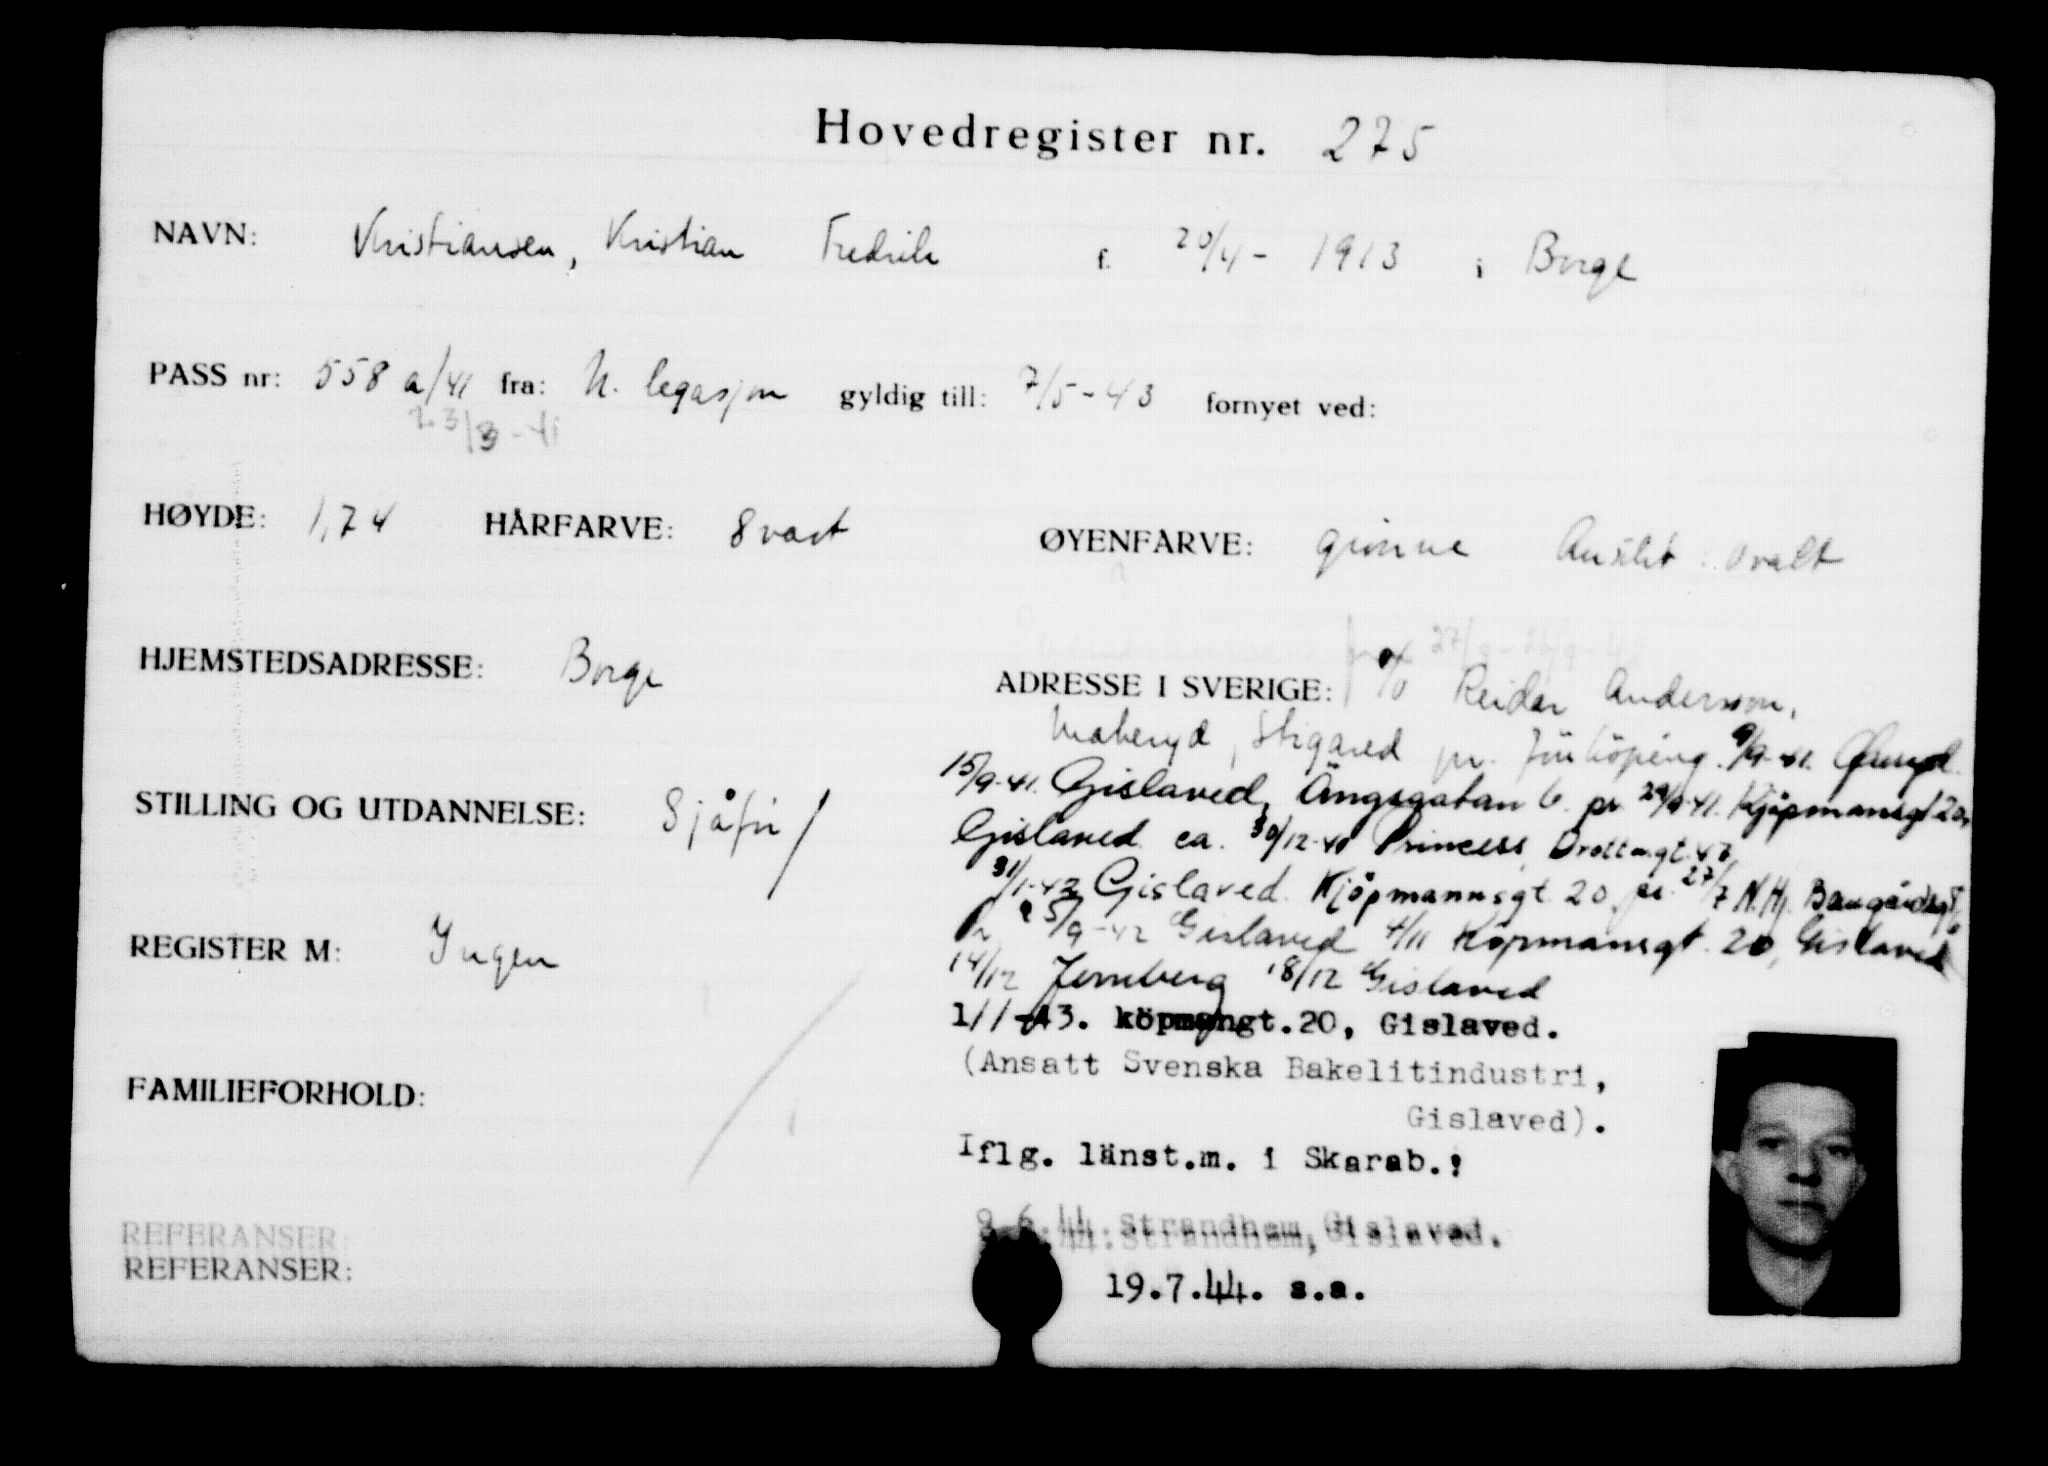 Hovedregister nr. 275
NAVN: Kristiansen, Kristian Fredrik f. 20/4 - 1913 i Borge
PASS nr: 558 a/41 fra: N. legasjon gyldig till: 7/5 - 43 fornyet ved:
HØYDE: 1,74 HÅRFARVE: Svart ØYENFARVE: grønne Ansikt: ovalt
HJEMSTEDSADRESSE: Borge
ADRESSE I SVERIGE: c/o Reidar Anderson,
Stigared pr. Jönköping. 9/9-41.
15/9-41. Gislaved, Ängsgatan 6. pr 29/9-41. Kjöpmansgt 20,
Gislaved. ca. 30/12-41 Princess Drottn.gt. 47,
STILLING OG UTDANNELSE: Sjåfør
31/1-42 Gislaved. Kjöpmannsgt 20 pr. 27/7 N.Hj.
25/9-42 Gislaved 4/11 Köpmansgt. 20, Gislaved
REGISTER M: Ingen
14/12 Jernberg 18/12 Gislaved
1/1-43. köpmangt.20, Gislaved.
(Ansatt Svenska Bakelitindustri,
Gislaved).
FAMILIEFORHOLD:
Iflg. länst.m. i Skarab.:
9.6.44. Strandhem, Gislaved.
REFERANSER:
REFERANSER:
19.7.44. s.a.